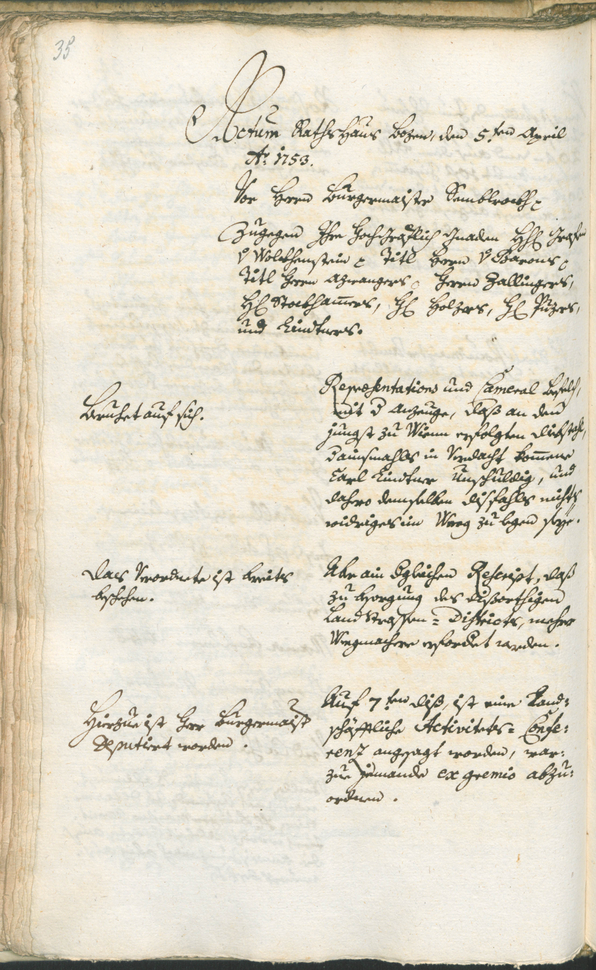 35
Actum Raths Haus Bozen, den 5.ten April
A.o 1753.
Vor Herrn Burgermaister
Zugegen Ihro Hochgräflich Gnaden
v Wolkhenstein Titl Herrn v
Titl Herrn Herrn Zallingers,
Hr Stockhamers, Hr Holzers, Hr
und Lindtners.
Beruhet auf sich.
Representations und Cameral Befelch,
mit d Anzeuge, daß an dem
jungst zu Wienn erfolgten
in Verdacht komene
Carl Lindtner Unschuldig, und
dahero demselben dißfahls nichts
widriges im Weeg zu legen seye.
Das Verordnete ist bereits
beschehen.
Aber ain Rescript, daß
zu des dißorthigen
Landstrassen-Districts, mehrer
Wegmacher erfordert werden.
Hierzue ist Herr Burgermaister
Deputiert worden.
Auf 7.ten diß, ist eine Land-
schäfftliche Activitets-Confe-
renz angesagt worden, war-
zue jemande ex gremio abzu-
ordnen.